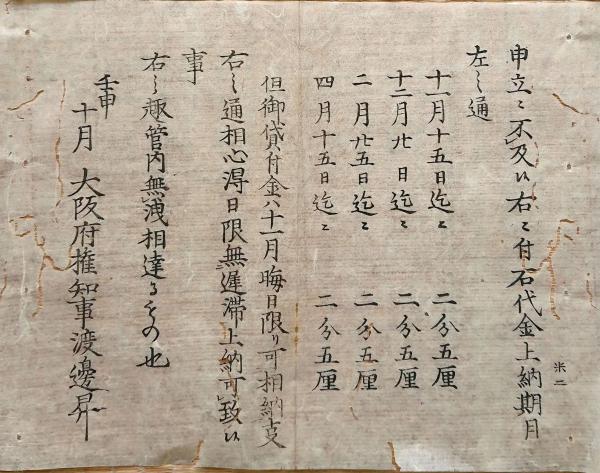 申立ニ不及候右ニ付石代金上納期月
左之通
十一月十五日迄ニ 二分五厘
十二月廿日迄ニ 二分五厘
二月廿五日迄ニ 二分五厘
四月十五日迄ニ 二分五厘
但御貸付金ハ十一月晦日限リ可相納事
右之通相心得日限無遅滞上納可致候
事
右之趣管内無洩相達るもの也
壬申
十月 大阪府権知事渡邊昇